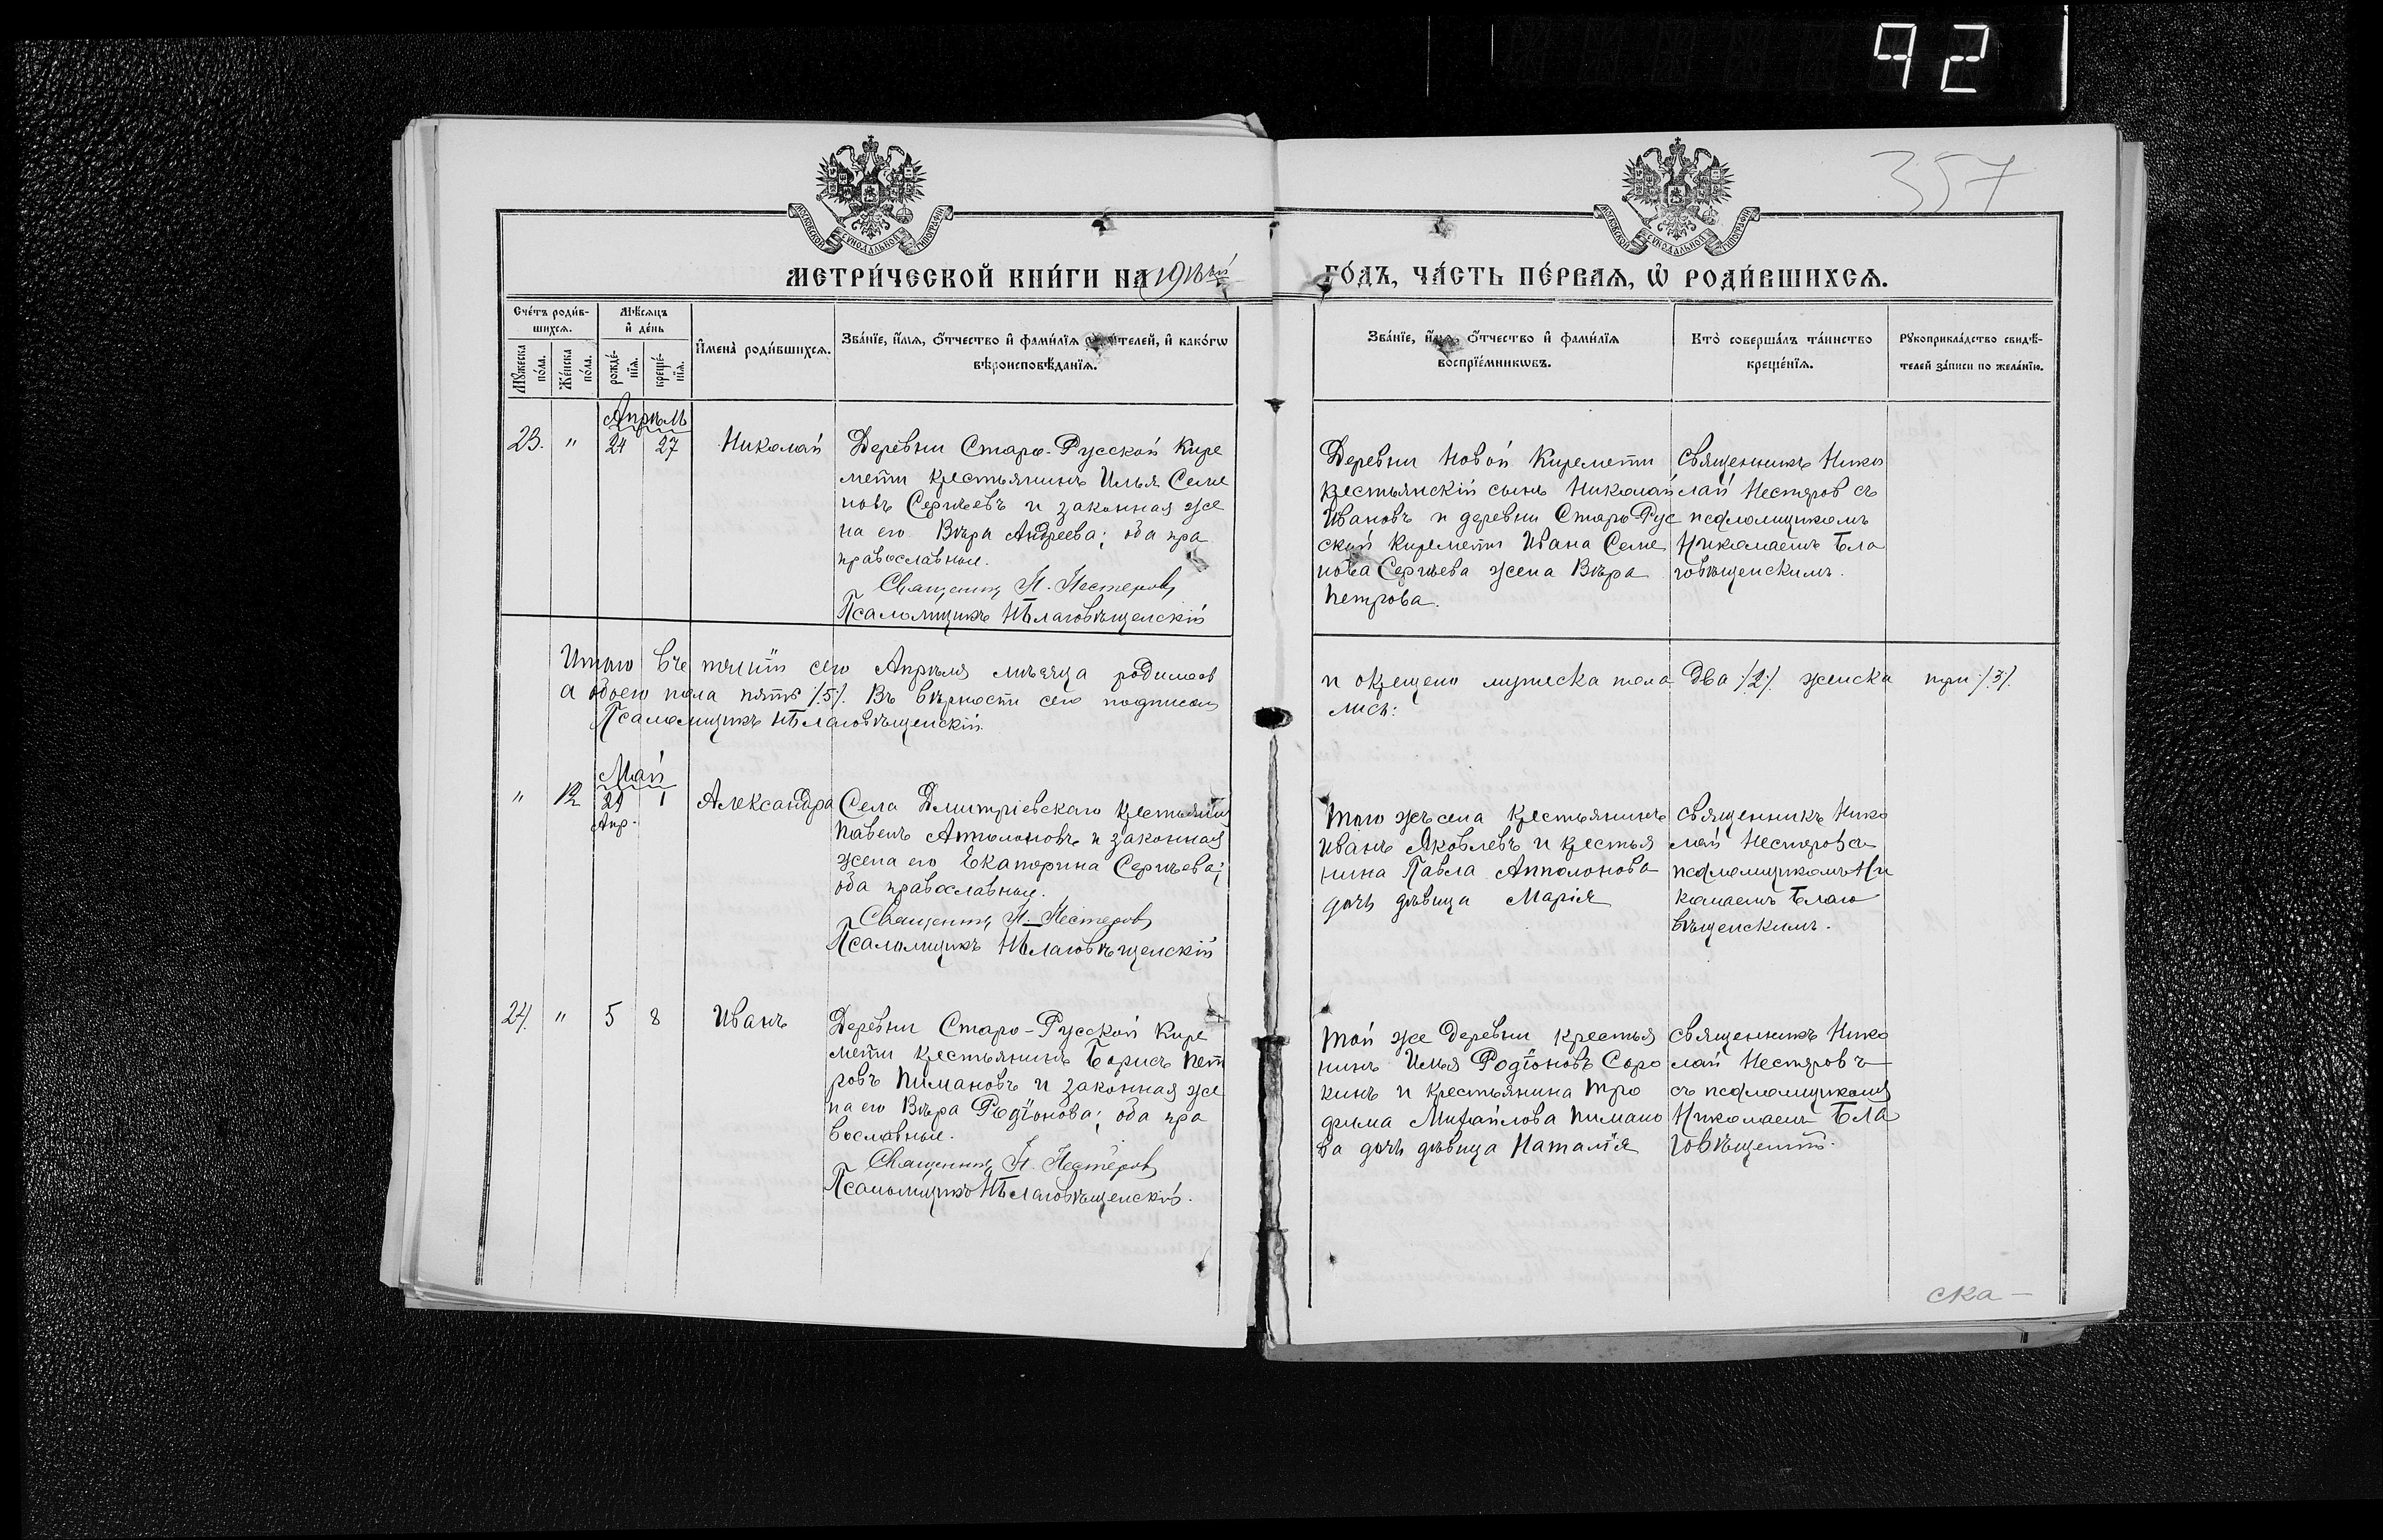 92
357
МОСКОВСКОЙ СѴНОДАЛЬНОЙ ТИПОГРАФІИ
МОСКОВСКОЙ СѴНОДАЛЬНОЙ ТИПОГРАФІИ
МЕТРИ́ЧЕСКОЙ КНИ́ГИ НА
ГО́ДЪ, ЧА́СТЬ ПЕ́РВАѦ, Ѡ҆ РОДИ́ВШИХСѦ.
Сче́тъ роди́в-
шихсѧ.
Мꙋ́жеска по́ла.
Же́нска по́ла.
Мѣ́сѧцъ
и҆ де́нь
рожде́-
нїѧ.
креще́-
нїѧ.
И҆мена̀ роди́вшихсѧ.
Зва́нїе, и҆́мѧ, ѻ҆́тчество и҆ фамн́лїѧ роди́телей, и҆ како́гѡ
вѣроисповѣ́данїѧ.
Зва́нїе, и҆́мѧ, ѻ҆́тчество и҆ фами́лїѧ
воспрїе́мникѡвъ.
Кто̀ соверша́лъ та́инство
креще́нїѧ.
Рꙋкоприкла́дство свидѣ́-
телей за́писи по жела́нїю.
Апрѣль
23. " 24 27 Николай
Деревни Старо-Русской Кире
мети крестьянинъ Илья Семе
новъ Сергѣевъ и законная же
на его Вѣра Андреева; оба пра
православные.
Священникъ Н. Нестеровъ
Псаломщикъ Н. Благовѣщенскій
Деревни Новой Киремети
крестьянскій сынъ Николай
Ивановъ и деревни Старо Рус
ской Киремети Ивана Семе
нова Сергѣева жена Вѣра
Петрова.
Священникъ Нико
лай Нестеров съ
псаломщикомъ
Николаемъ Бла
говѣщенскимъ.
Итого въ теченіи сего Апрѣля мѣсяца родилось
и окрещено мужеска пола два /2/ женска три /3/.
а обоего пола пять /5/. Въ вѣрности сего подписа
лись:
Псаломщикъ Н. Благовѣщенскій.
Май
" 12 29 1 Александра
Апр.
Села Дмитріевскаго крестьянинъ
Павелъ Апполоновъ и законная
жена его Екатерина Сергѣева;
оба православные.
Священникъ Н. Нестеровъ
Псаломщикъ Н. Благовѣщенскій
Того жъ села крестьянинъ
Иванъ Яковлевъ и крестья
нина Павла Апполонова
дочь дѣвица Марія
Священникъ Нико
лай Нестеров съ
псаломщикомъ Ни
колаемъ Благо
вѣщенскимъ.
24. " 5 8 Иванъ
Деревни Старо-Русской Кире
мети крестьянинъ Борисъ Пет
ровъ Пимановъ и законная же
на его Вѣра Родіонова; оба пра
вославные.
Священникъ Н. Нестеровъ
Псаломщикъ Н. Благовѣщенскій.
Той же деревни крестья
нинъ Илья Родіоновъ Соро
кинъ и крестьянина Тро
фима Михайлова Пимано
ва дочь дѣвица Наталія
Священникъ Нико
лай Нестеровъ
съ псаломщикомъ
Николаемъ Бла
говѣщенск.
ска-